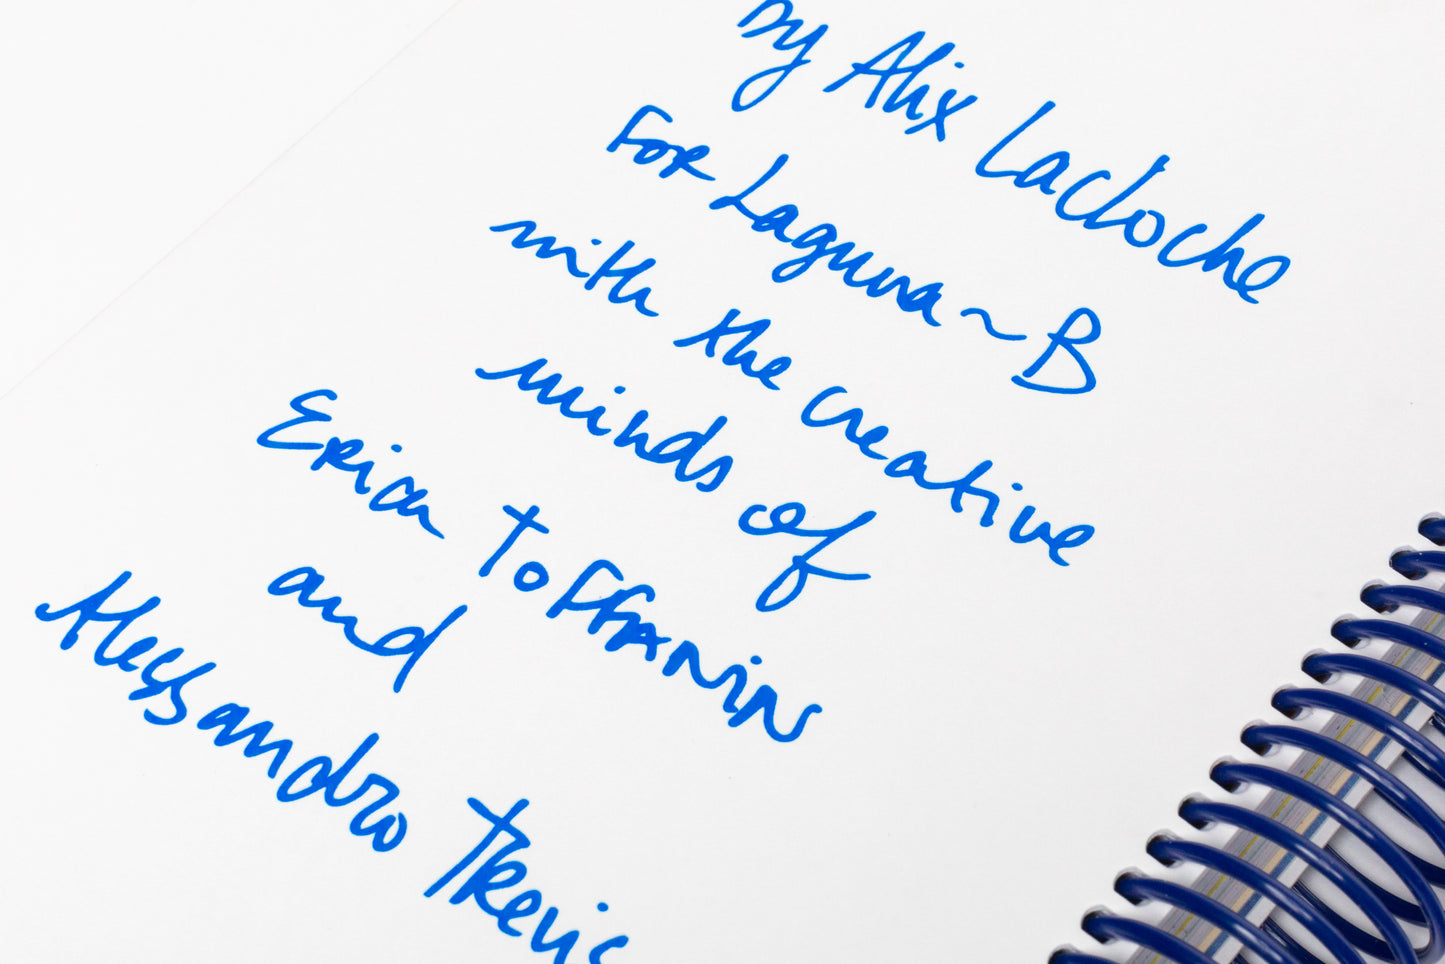 by Alix Lacloche
For Laguna~B
with the creative
minds of
Erica Toffanin
and
Alessandro